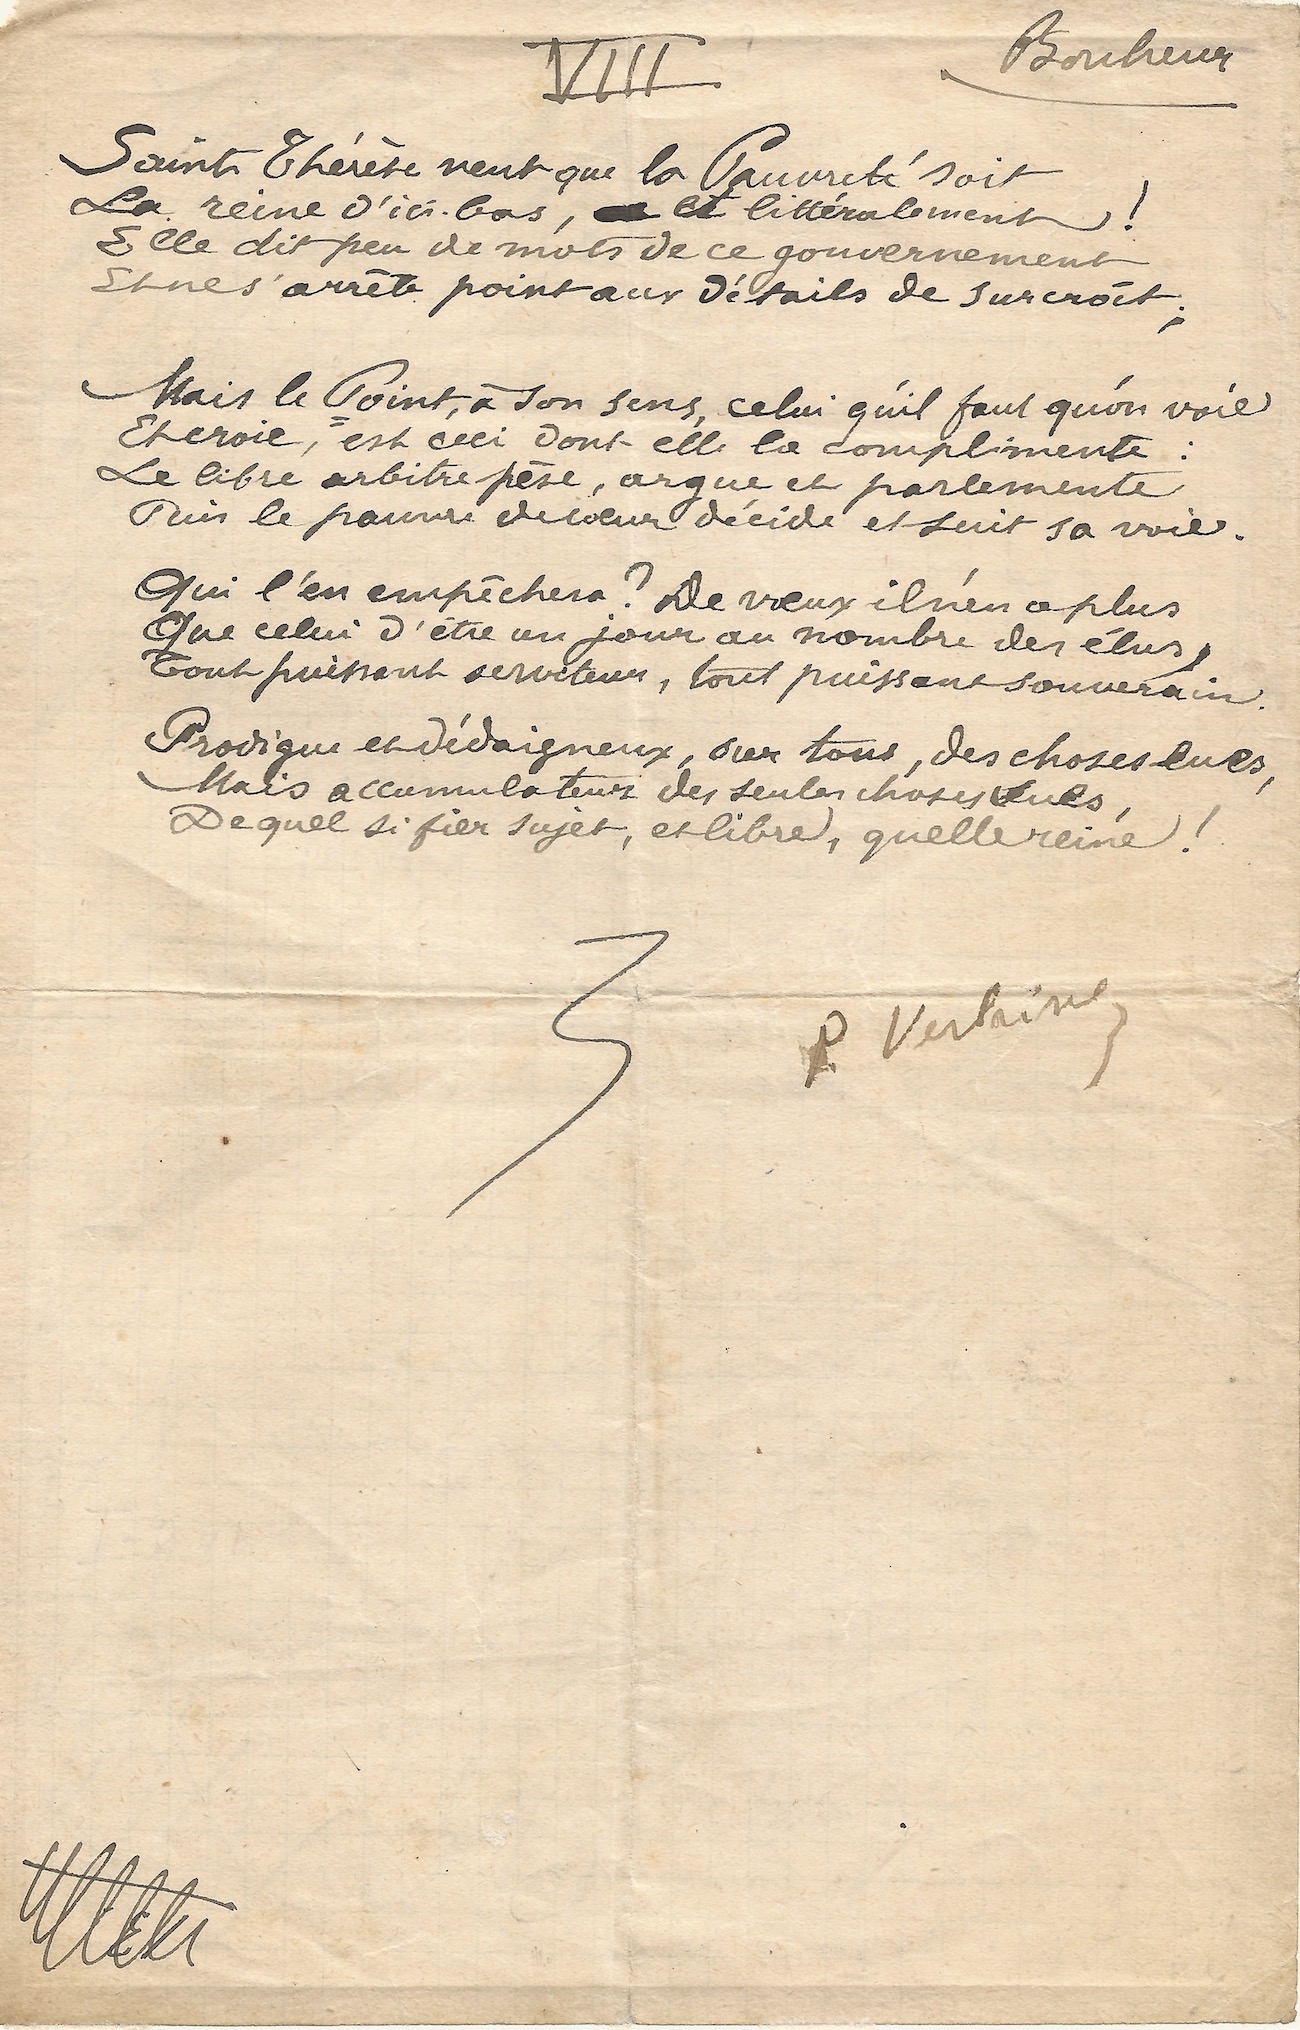 VIII
Bonheur
Sainte Thérèse veut que la Pauvreté soit
La reine d'ici-bas, et littéralement !
Elle dit peu de mots de ce gouvernement
Et ne s'arrête point aux détails de surcroît ;
Mais le Point, à son sens, celui qu'il faut qu'on voie
Et croie, est ceci dont elle la complimente :
Le libre arbitre pèse, argue et parlemente
Puis le pauvre de cœur décide et suit sa voie.
Qui l'en empêchera ? De vœux il n'en a plus
Que celui d'être un jour au nombre des élus,
Tout puissant serviteur, tout puissant souverain.
Prodigue et dédaigneux, sur tous, des choses eues,
Mais accumulateur des seules choses sues,
De quel si fier sujet, et libre, quelle reine !
P. Verlaine